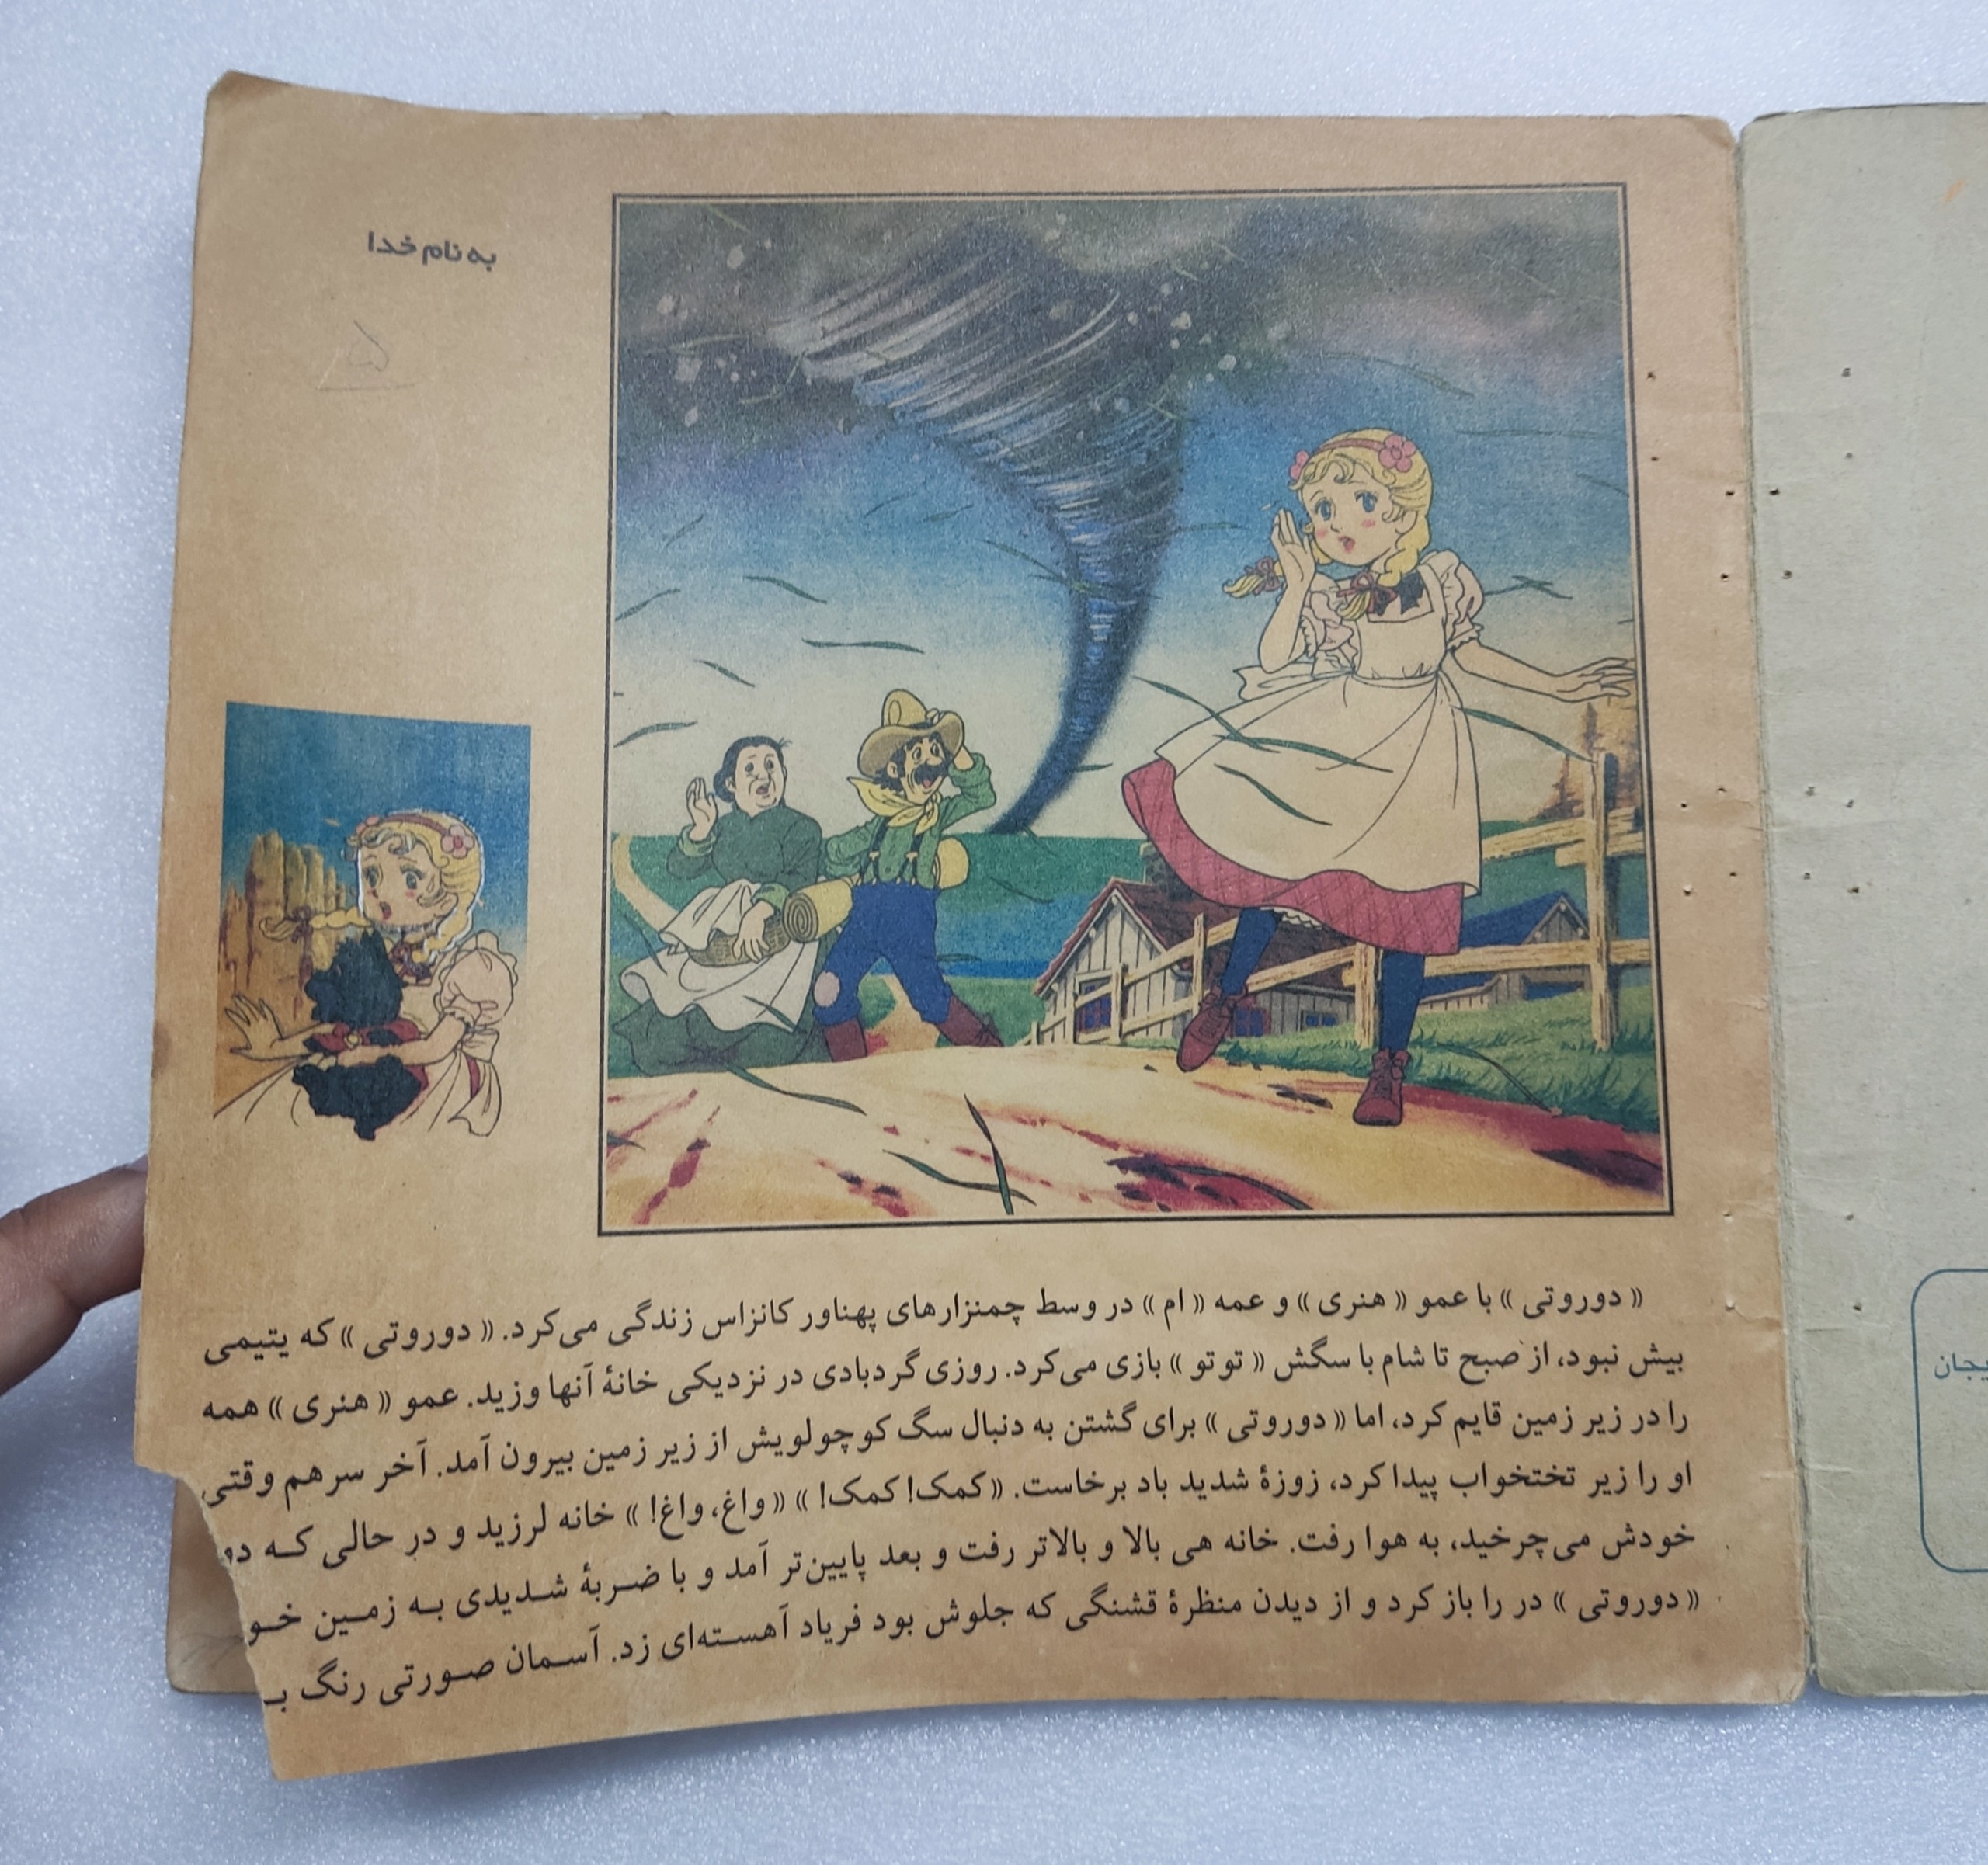 به نام خدا
۵
« دوروتی » با عمو « هنری » و عمه « ام » در وسط چمنزارهای پهناور کانزاس زندگی می‌کرد. « دوروتی » که یتیمی
بیش نبود، از صبح تا شام با سگش « توتو » بازی می‌کرد. روزی گردبادی در نزدیکی خانهٔ آنها وزید. عمو « هنری » همه
را در زیر زمین قایم کرد، اما « دوروتی » برای گشتن به دنبال سگ کوچولویش از زیر زمین بیرون آمد. آخر سر هم وقتی
او را زیر تختخواب پیدا کرد، زوزهٔ شدید باد برخاست. « کمک! کمک! » « واغ، واغ! » خانه لرزید و در حالی که
خودش می‌چرخید، به هوا رفت. خانه هی بالا و بالاتر رفت و بعد پایین‌تر آمد و با ضربهٔ شدیدی به زمین
« دوروتی » در را باز کرد و از دیدن منظرهٔ قشنگی که جلوش بود فریاد آهسته‌ای زد. آسمان صورتی رنگ